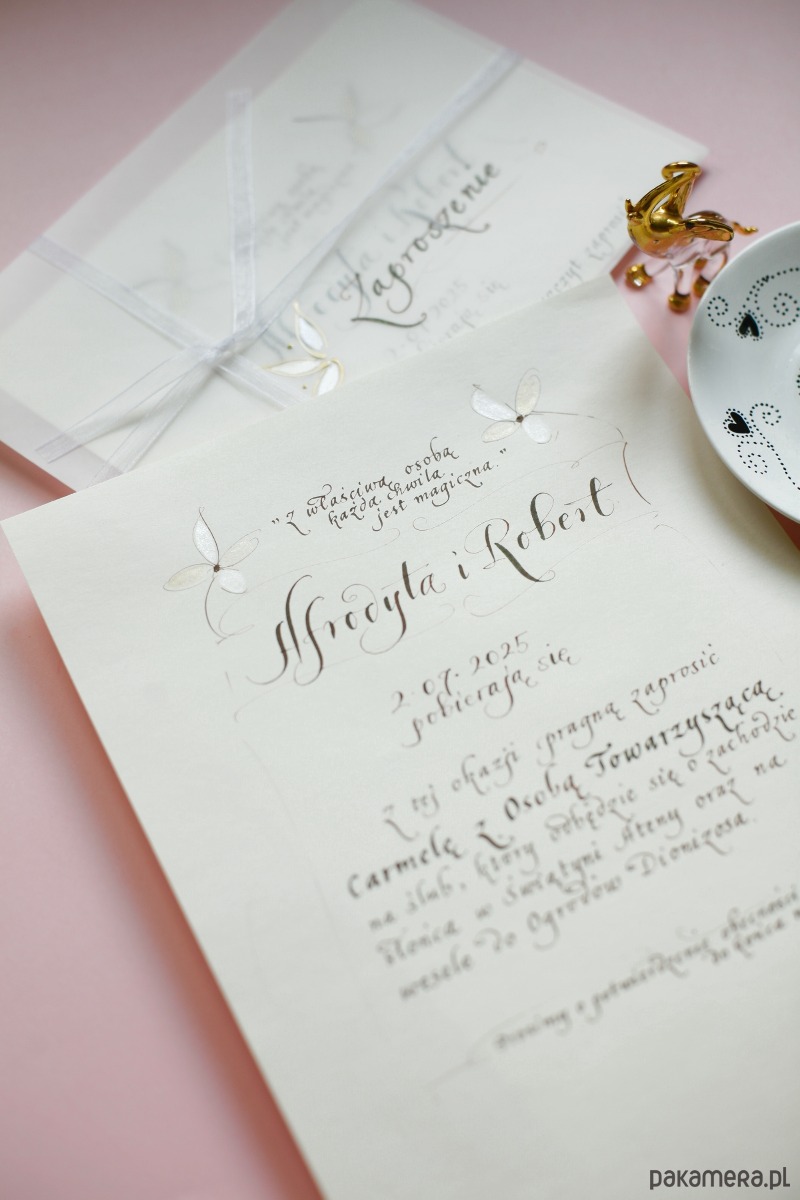 Zaproszenie
"z właściwą osobą
każda chwila
jest magiczna."
Afrodyta i Robert
2.07.2025
pobierają się
z tej okazji pragną zaprosić
Carmelę z Osobą Towarzyszącą.
na ślub, który odbędzie się o zachodzie
słońca w świątyni Ateny oraz na
wesele do Ogrodów Dionizosa.
Prosimy o potwierdzenie obecności
do końca
pakamera.pl